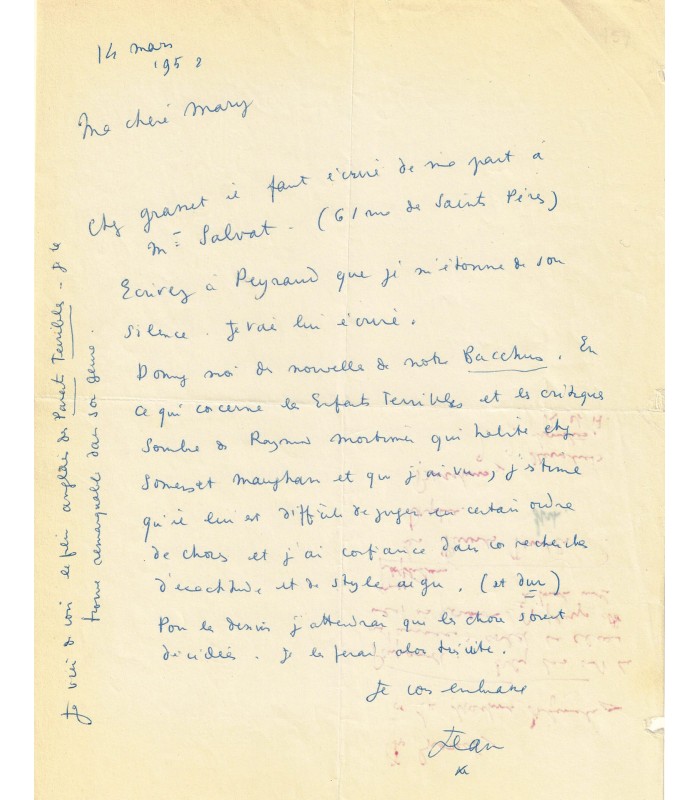 14 mars
195
Ma chère Mary
Chez Grasset il faut écrire de ma part à
Mme Salvat. (61 rue des Saints Pères)
Ecrivez à Peyraud que je m'étonne de son
silence. Je vais lui écrire.
Donnez moi des nouvelles de notre Bacchus. En
ce qui concerne les Enfants Terribles et les critiques
de Raymond Mortimer qui habite chez
Somerset Maugham et que j'ai vu, j'estime
qu'il lui est difficile de juger un certain ordre
de choses et j'ai confiance dans vos recherches
d'exactitude et de style aigu. (et dur)
Pour les dessins j'attendrai que les choses soient
décidées. Je les ferai alors de suite.
Je vous embrasse
Jean
Je viens de voir le film anglais des Parents Terribles - je le
trouve remarquable dans son genre.